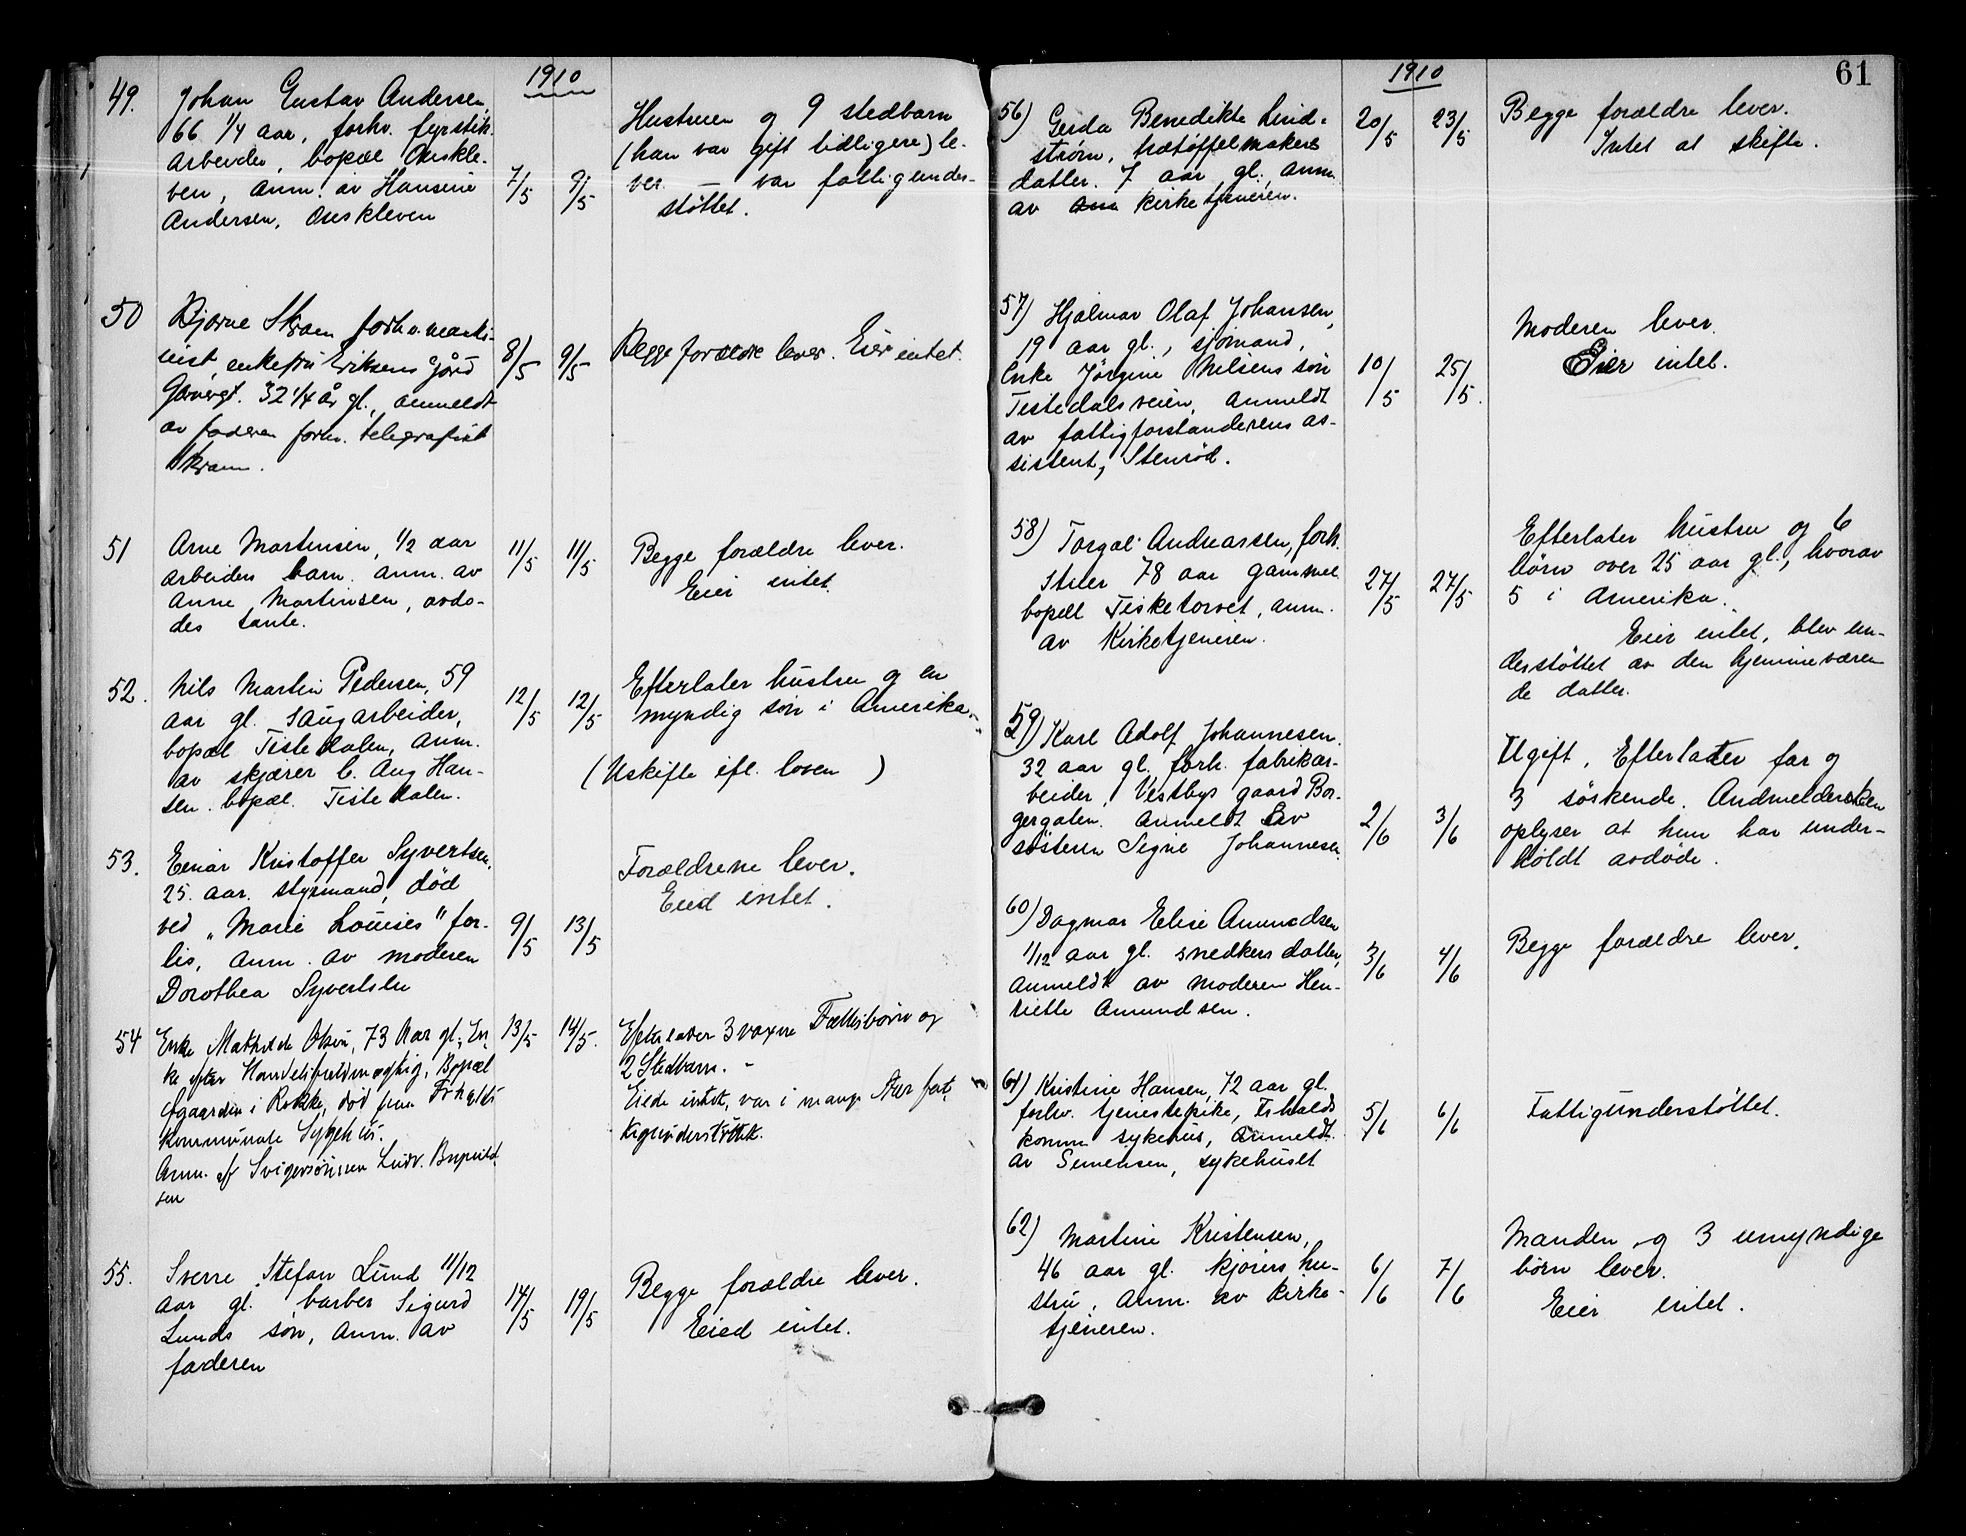 1910
49. Johan Gustav Andersen,
66 1/4 aar, forhv. fyrstik-
arbeider, bopæl Auskle-
ven, anm. av Hansine
Andersen, Auskleven
7/5 9/5
Hustruen og 9 stedbarn
(han var gift tidligere) le-
ver. — var fattigunder-
støttet.
50 Bjarne Skram forhv. maski-
nist, enkefru Eriksens gård
32 1/4 år gl., anmeldt
av faderen forhv. telegrafist
Skram.
8/5 9/5
Begge forældre lever. Eier intet.
51 Arne Martinsen, 1/2 aar
arbeiders barn. anm. av
Anne Martinsen, avdø-
des tante.
11/5 11/5
Begge forældre lever.
Eier intet.
52. Nils Martin Pedersen, 59
aar gl. saugarbeider,
bopæl Tistedalen, anm.
av skjærer C. Aug Han-
sen. bopæl. Tistedalen.
12/5 12/5
Efterlater hustru og en
myndig søn i Amerika.
(Uskifte ifl. loven )
53. Einar Kristoffer Syvertsen,
25. aar. styrmand, død
ved „Marie Louises" for-
lis, anm. av moderen
Dorothea Syvertsen
9/5 13/5
Forældrene lever.
Eied intet.
54 Enke Mathilde Olsen, 73 Aar gl., En-
ke efter Handelsfuldmægtig, Bopæl
i Rokke, død paa Fr.halds
kommunale Sygehus.
Anm. af Svigersønnen Ludv.
sen
13/5 14/5.
Efterlader 3 voxne Fællesbørn og
2 Stedbarn. -
Eiede intet, var i mange Aar fat-
tigunderstøttet.
55. Sverre Stefan Lund 11/12
aar gl. barber Sigurd
Lunds søn, anm. av
faderen
14/5 19/5
Begge forældre lever.
Eied intet.
61
1910
56) Gerda Benedikte Lind-
strøm, trætøffelmakers
datter. 7 aar gl., anm.
av kirketjeneren.
20/5 23/5
Begge forældre lever.
Intet at skifte.
57) Hjalmar Olaf Johansen,
19 aar gl., sjømand,
Enke Jørgine Nilsens søn
Tistedalsveien, anmeldt
av fattigforstanderens as-
sistent, Stenrød.
10/5 25/5.
Moderen lever.
Eier intet.
58) Torgal Andreassen, forh.
78 aar gammel
bopæl Fisketorvet, anm.
av Kirketjeneren.
27/5 27/5
Efterlater hustru og 6
børn over 25 aar gl., hvorav
5 i Amerika.
Eier intet, blev un-
derstøttet av den hjemmeværen
de datter.
59) Karl Adolf Johannesen.
32 aar gl. forh. fabrikar-
beider, Vestbys gaard Bor-
gergaten. Anmeldt av
søsteren Signe Johannesen.
2/6 3/6
Ugift, Efterlater far og
3 søskende. Andmeldersken
oplyser at hun har under-
holdt avdøde.
60) Dagmar Elise Amundsen
1/12 aar gl. snedkers datter,
anmeldt av moderen Hen-
riette Amundsen.
3/6 4/6
Begge forældre lever.
61) Kristine Hansen, 72 aar gl.
forhv. tjenestepike, Fr.halds
komm sykehus, Anmeldt.
av Simensen, sykehuset
5/6 6/6
Fattigunderstøttet.
62) Martine Kristensen,
46 aar gl. kjørers hu-
stru, anm. av kirke-
tjeneren.
6/6 7/6
Manden og 3 umyndige
børn lever.
Eier intet.